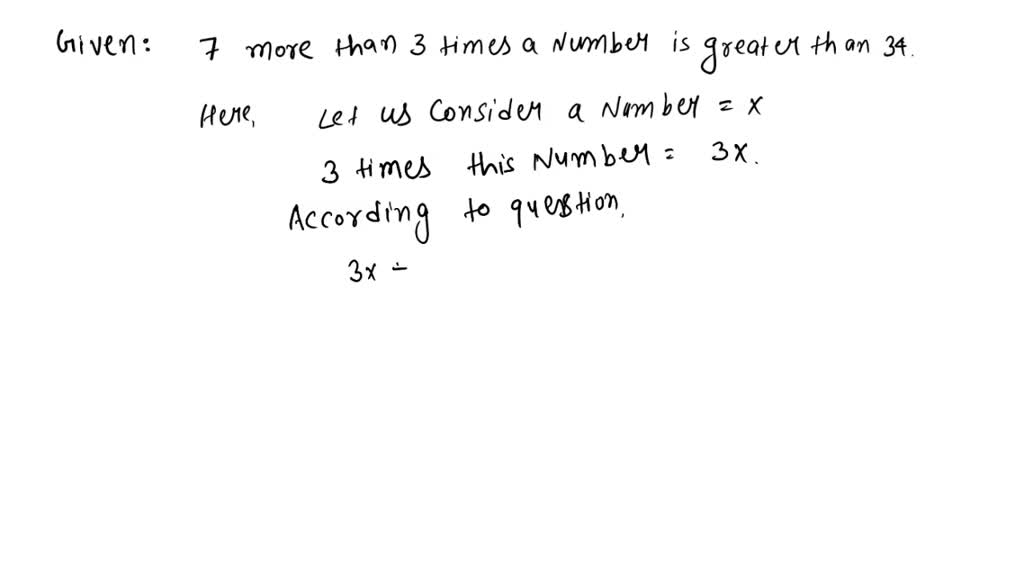 Given: 7 more than 3 times a Number is greater than 34.
Here, Let us Consider a Number = x
3 times this Number = 3x.
According to question,
3x -